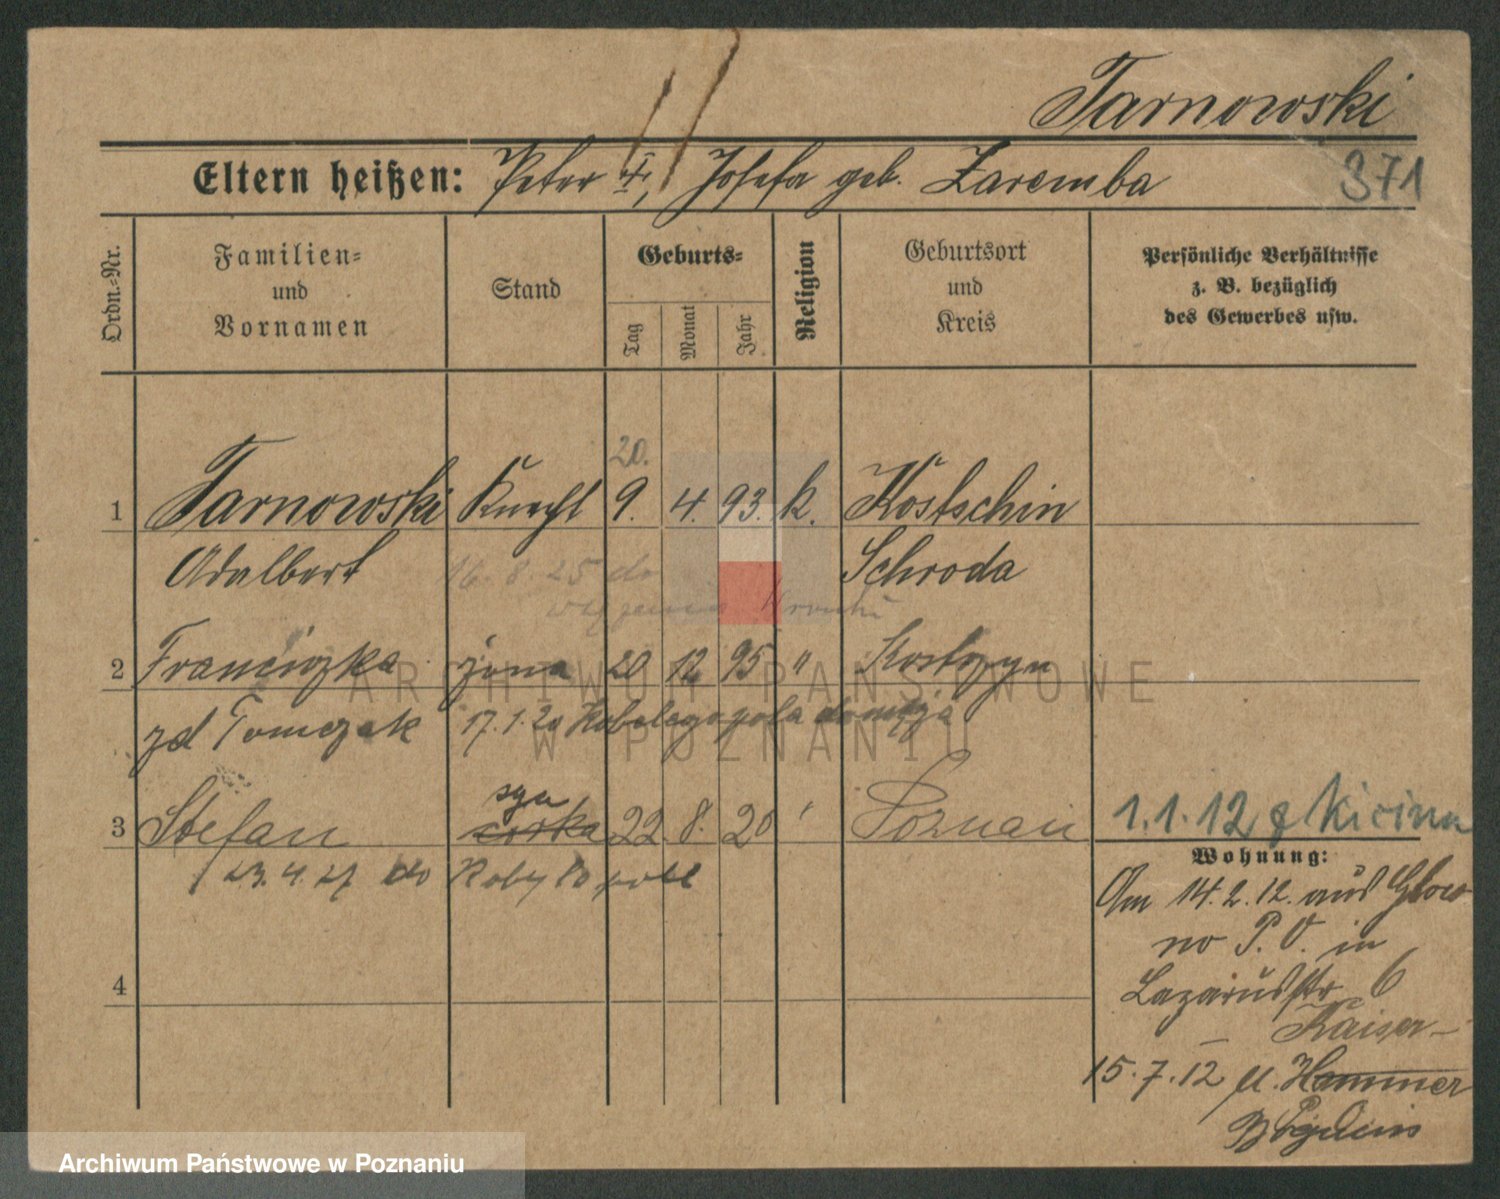 Tarnowski
Eltern heißen: Peter †, Josefa geb. Zaremba
371
Ordn.-Nr.
Familien-
und
Vornamen
Stand
Geburts-
Tag
Monat
Jahr
Religion
Geburtsort
und
Kreis
Persönliche Verhältnisse
z. B. bezüglich
des Gewerbes usw.
20.
1 Tarnowski Knecht 9. 4. 93. k. Kostschin
Adalbert Schroda
16. 8. 25 do
2 Franciszka żona 20 12 95 " Kostrzyn
zd Tomczak 17.1.20 Kobelegopola
syn
3 Stefan córka 22 8. 20 ' Poznań
23.4.27 do Kobylopole
1.1.12 Kicina
Wohnung:
Am 14.2.12. aus Glow
no P.O. in
Lazarusstr 6
4
Kaiser-
15.7.12 u. Hammer
ARCHIWUM PAŃSTWOWE
W POZNANIU
Archiwum Państwowe w Poznaniu